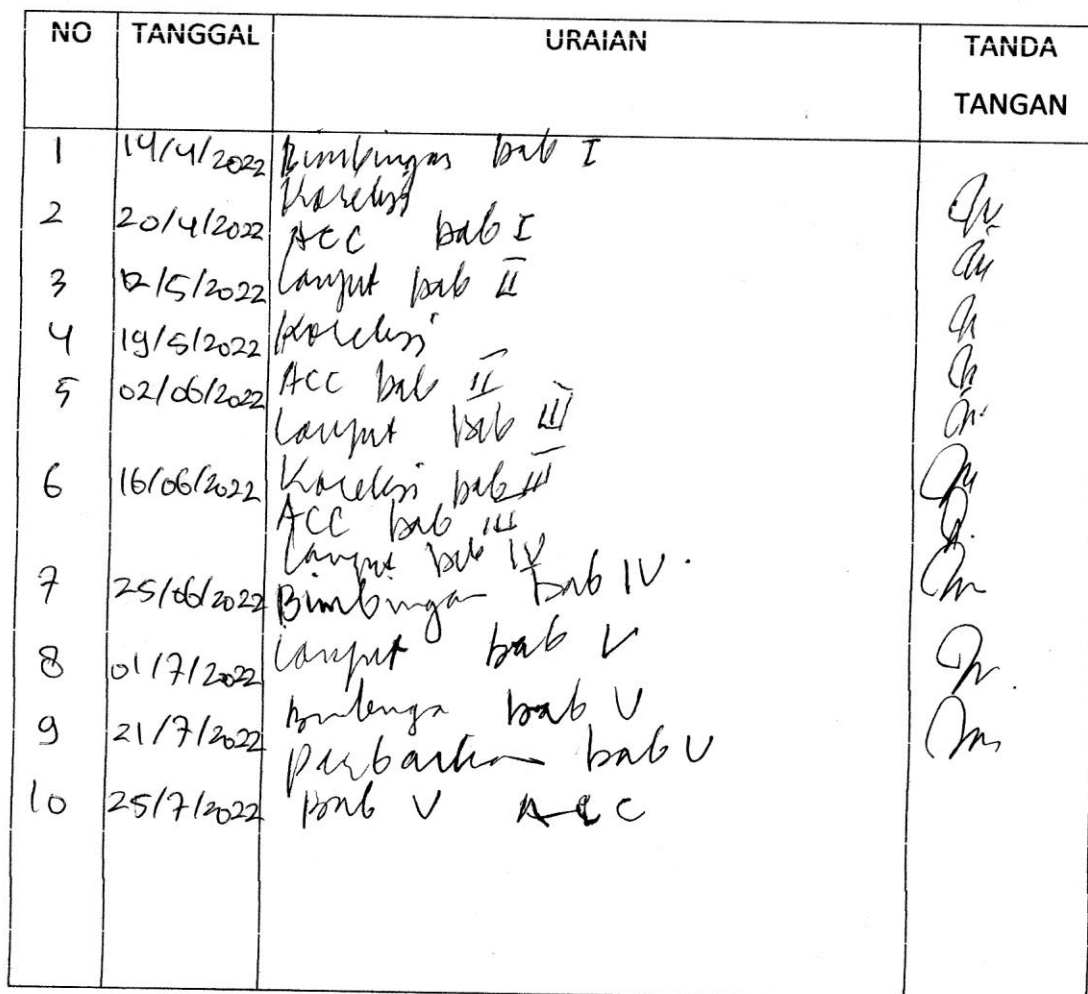 NO TANGGAL URAIAN TANDA TANGAN
1 14/4/2022 Bimbingan bab I
Koreksi
2 20/4/2022 ACC bab I
3 12/5/2022 Lanjut bab II
4 19/5/2022 Koreksi
5 02/06/2022 ACC bab II
Lanjut bab III
6 16/06/2022 Koreksi bab III
ACC bab III
Lanjut bab IV
7 25/06/2022 Bimbingan bab IV.
8 01/7/2022 Lanjut bab V
bab V
9 21/7/2022 Perbaikan bab V
10 25/7/2022 Bab V ACC